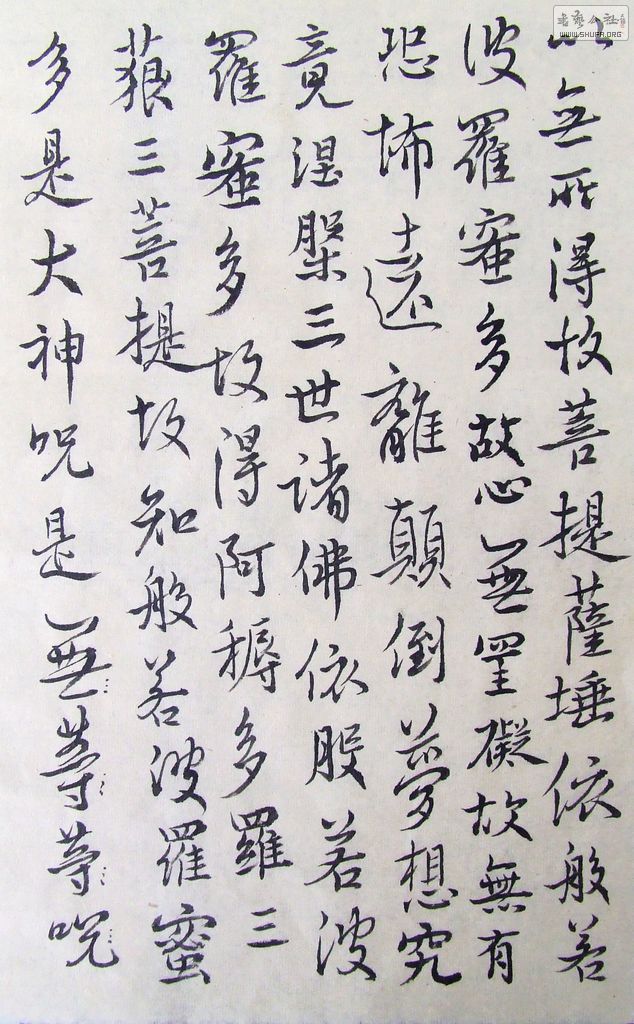 書藝公社
WWW.SHUFA.ORG
以無所得故菩提薩埵依般若
波羅蜜多故心無罣礙故無有
恐怖遠離顛倒夢想究
竟涅槃三世諸佛依般若波
羅蜜多故得阿耨多羅三
藐三菩提故知般若波羅蜜
多是大神呪是無等等呪